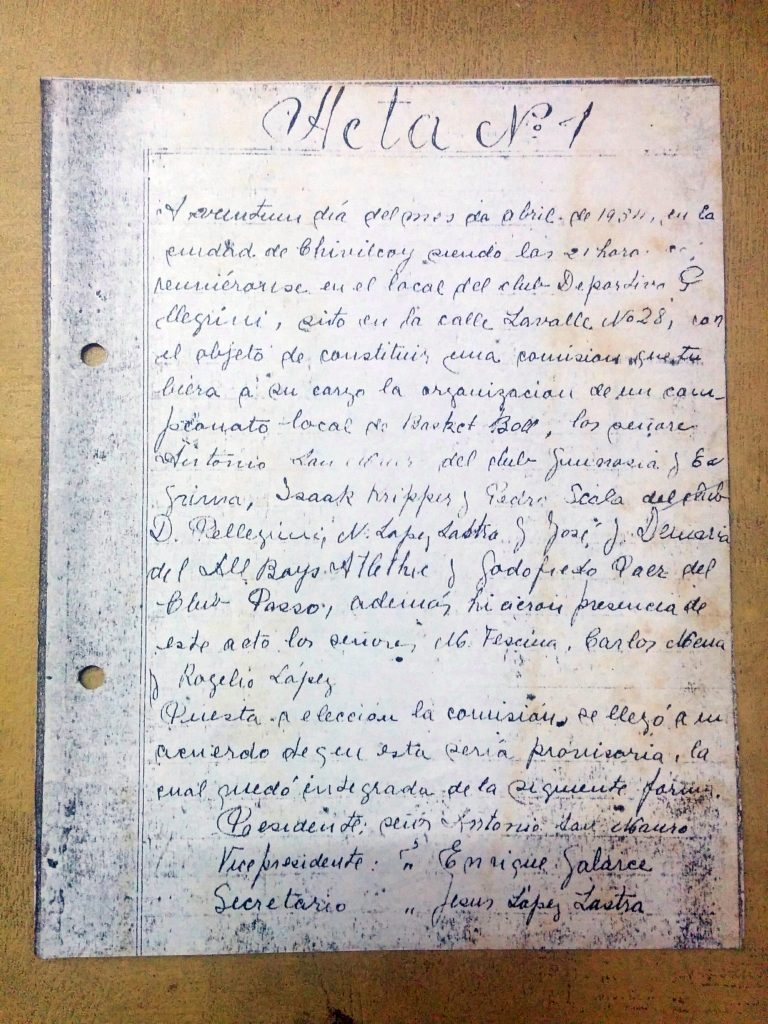 Acta No. 1
A ventiun día del mes de abril de 1934, en la
ciudad de Chivilcoy siendo las 21 hora
reuniéronse en el local del club Deportivo P
llegrini, sito en la calle Lavalle No 28, con
el objeto de constituir una comision que tu
biera á su cargo la organizacion de un cam-
peonato local de Basket Boll, los señore
Antonio San del club Gimnasia y Es
grima, Isaak Kripper y Pedro Scala del club
D. Pellegrini, N. Lopez Lastra y José J. Demaria
del All Boys Atlethic y Godofredo Paez del
Club Passo, además hicieron presencia de
este acto los señores M. Fescina, Carlos Mena
y Rogelio López
Puesta a elección la comisión, se llegó a un
acuerdo de que esta sería provisoria, la
cual quedó integrada de la siguiente forma.
Presidente: señor Antonio San Mauro
Vicepresidente: " Enrique Galarce
Secretario " Jesus López Lastra